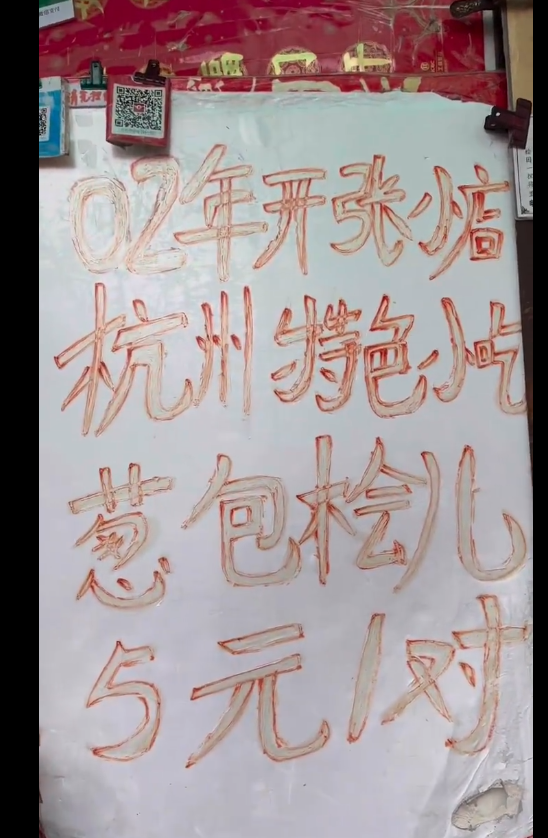 02年开张小店
杭州特色小吃
葱包桧儿
5元1对